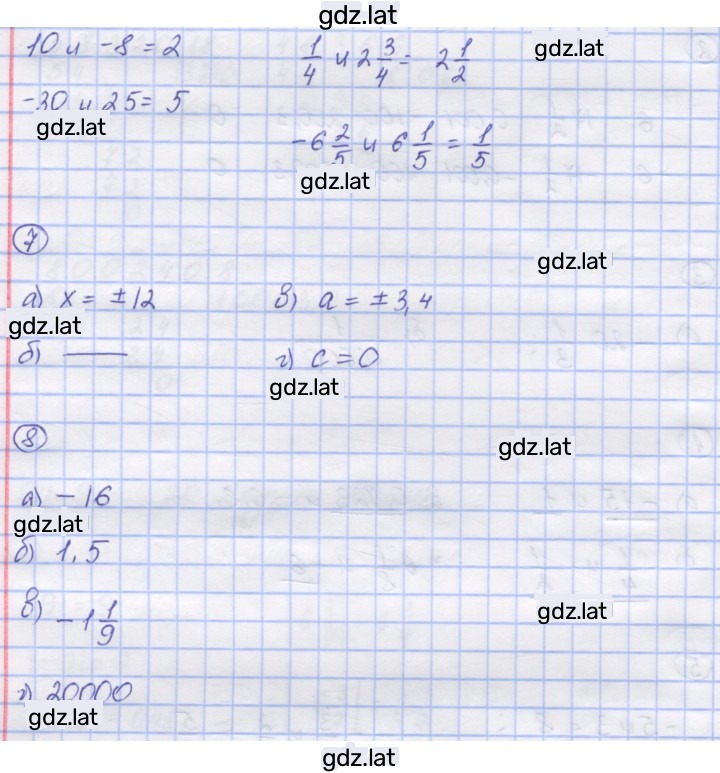 gdz.lat
10 и -8 = 2
1/4 и 2 3/4 = 2 1/2
gdz.lat
-20 и 25 = 5
gdz.lat
-6 2/5 и 6 1/5 = 1/5
gdz.lat
7
gdz.lat
а) x = ±12
в) a = ±3,4
gdz.lat
б) —
г) c = 0
gdz.lat
8
gdz.lat
а) -16
gdz.lat
б) 1,5
в) -1 1/9
gdz.lat
г) 20000
gdz.lat
gdz.lat